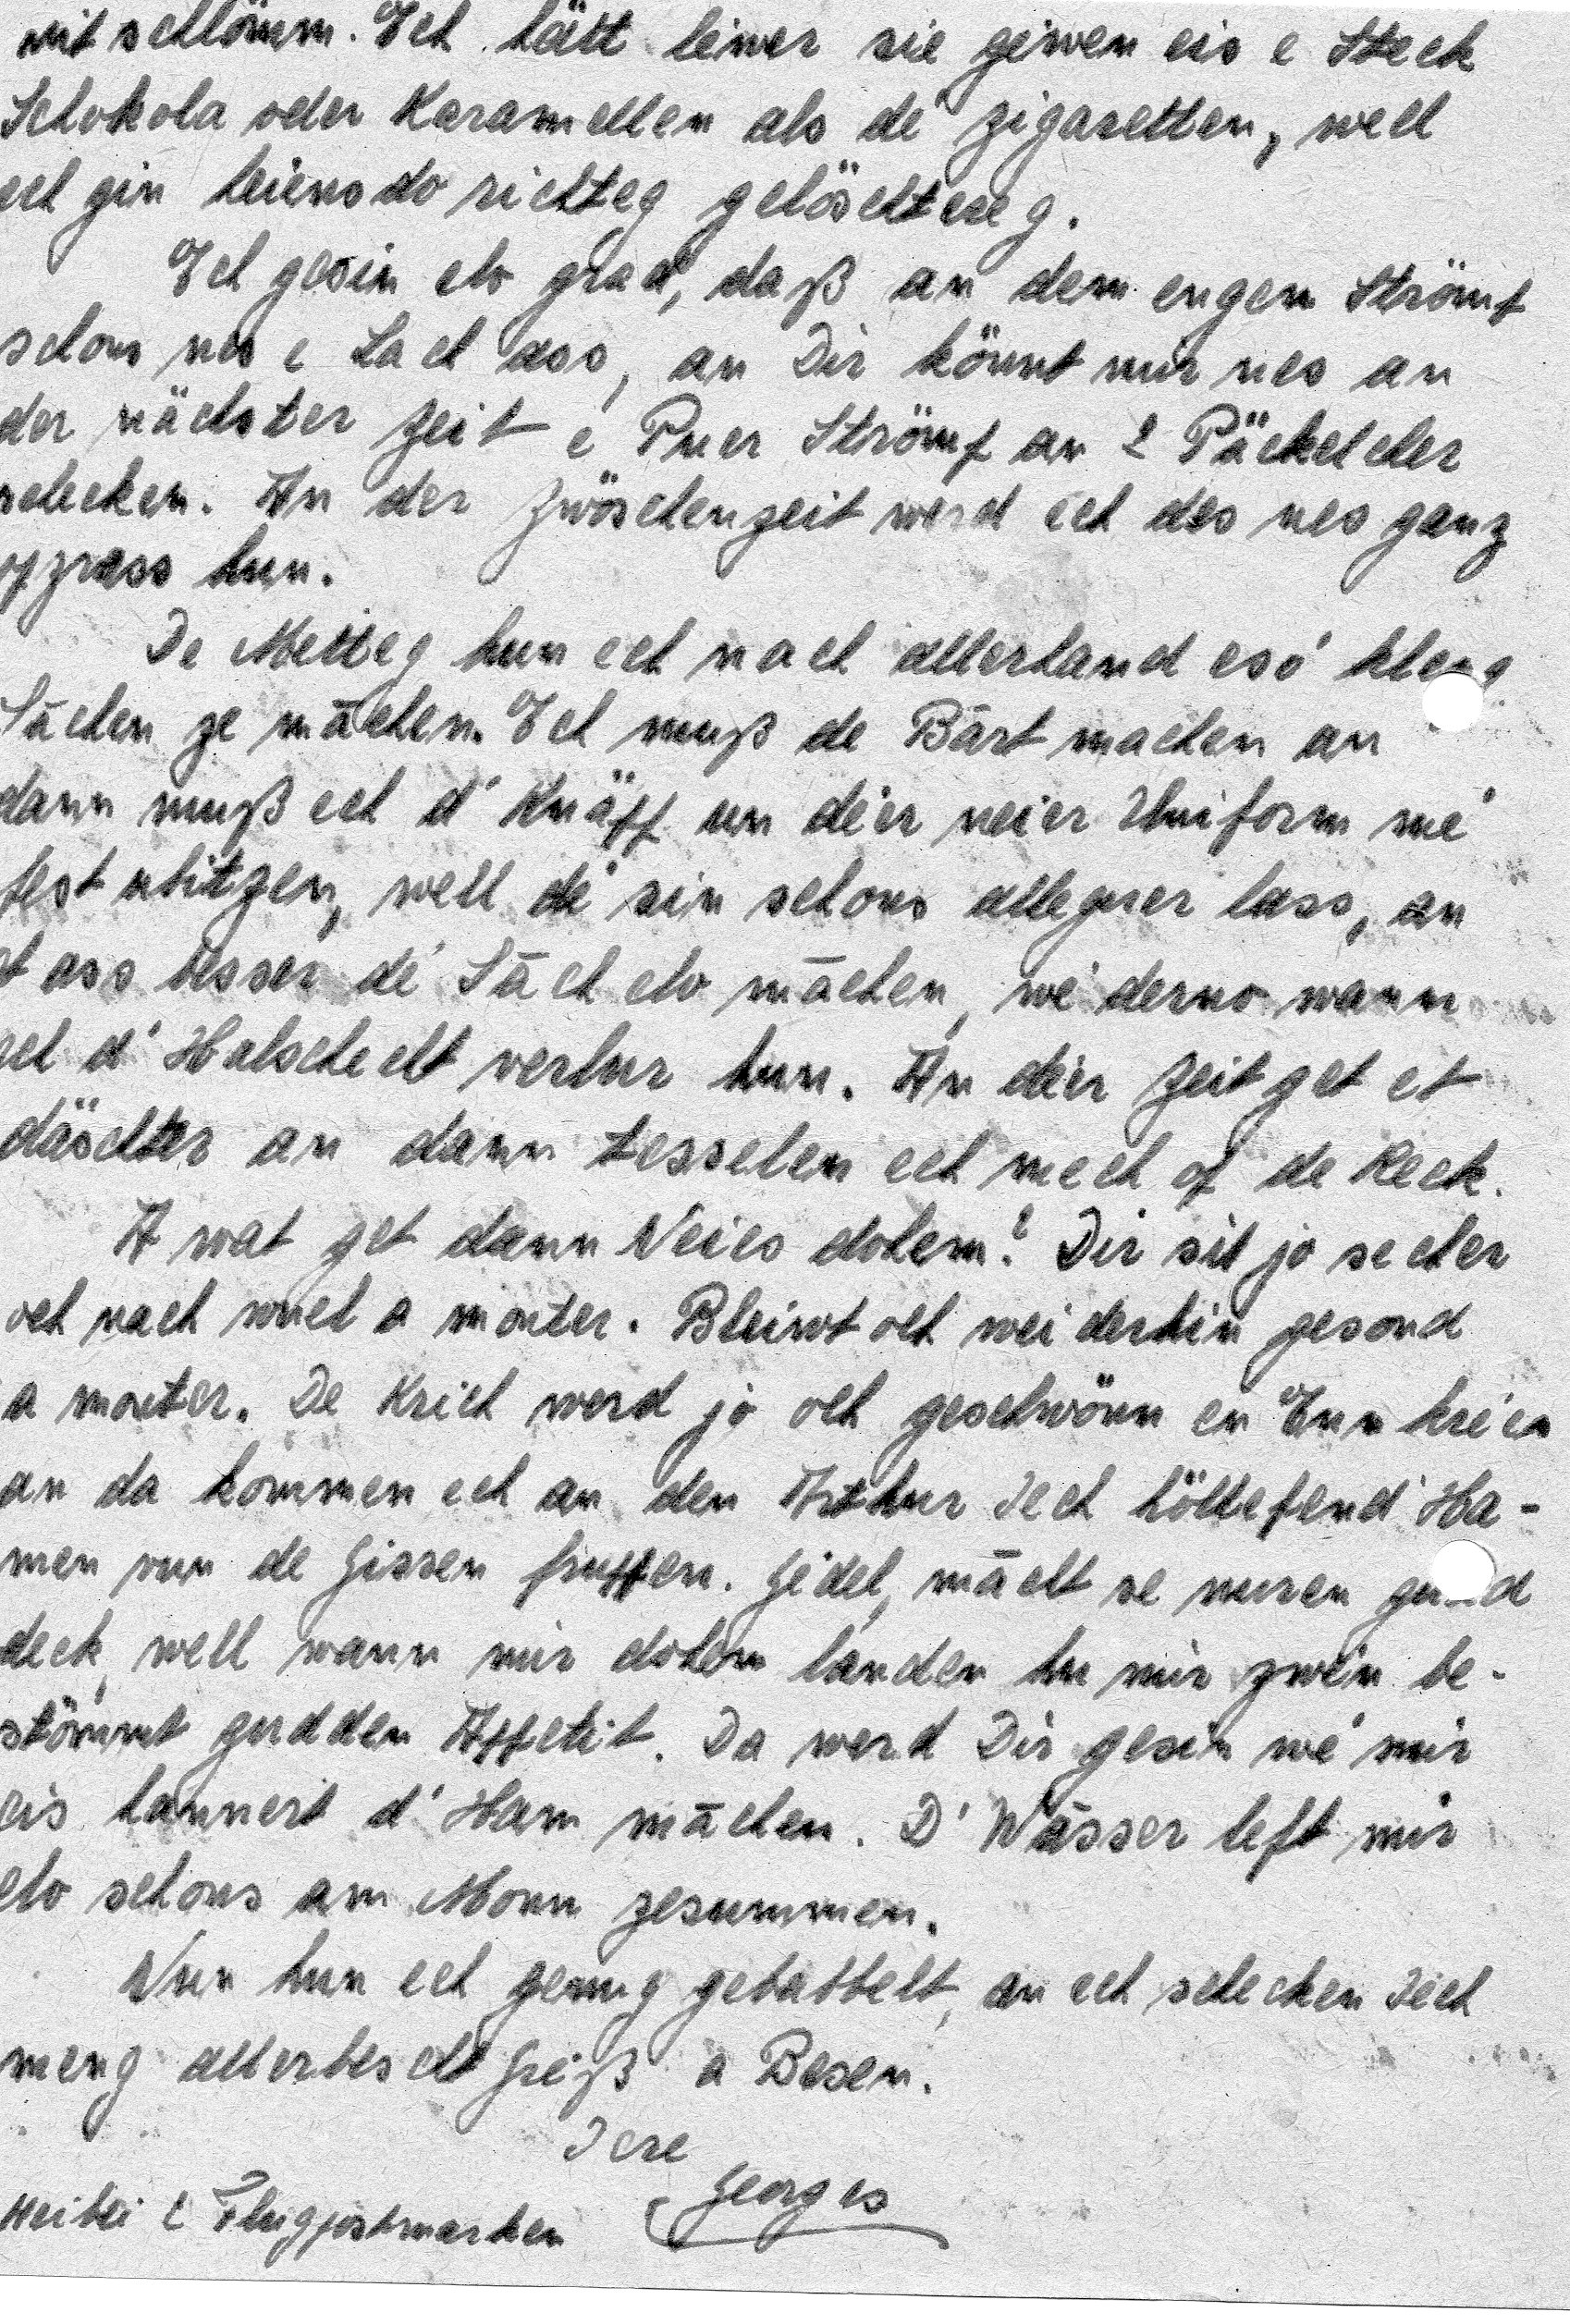 nit schlömm. Ech hätt léiwer sie géiwen eis e Steck
Schokola oder Karamellen als dé Zigaretten, well
ech gin heiensdo richteg gelöschtereg.
Ech gesin elo grad, daß an dem engen Strömf
schons nes e Lach ass, an Dir könnt mir nes an
der nächster Zeit e Puer Strömf an 2 Päckelcher
schecken. An der Zwöschenzeit werd ech des nes ganz
opzrass hun.
De Metteg hun ech nach allerhand esó kleng
Sāchen ze māchen. Ech muß de Bārt machen an
dann muß ech d' Knäpp un déer neier Uniform mé
fest ubitzen, well dé sin schons alleguer lass, an
t ass besser dé Sāch elo māchen, wé derno wann
ech d' Halschecht verluer hun. An déer Zeit get et
däschter an dann tesselen ech mech of de Reck.
A wat get dann Neies dohem? Dir sit jo secher
och nach wuel a monter. Bleiwt och weiderhin gesond
a monter. De Krich werd jo och geschwönn en Enn kréien
an da kommen ech an den Arthur Iech höllefen d' Ha-
men vun de Gissen fruppen. Gédel, māch se nuren gu d
deck, well wann mir dohem landen hu mir zwén be-
stömmt gudden Appetit. Da werd Dir gesin wé mir
eis hannert d' Ham māchen. D' Wāsser left mir
elo schons am Monn zesummen.
Nun hun ech genug gebabbelt, an ech schecken Iech
meng allerbescht Gréiß a Besen.
Iere
Georges
Heibei 2 Flugpostmarken